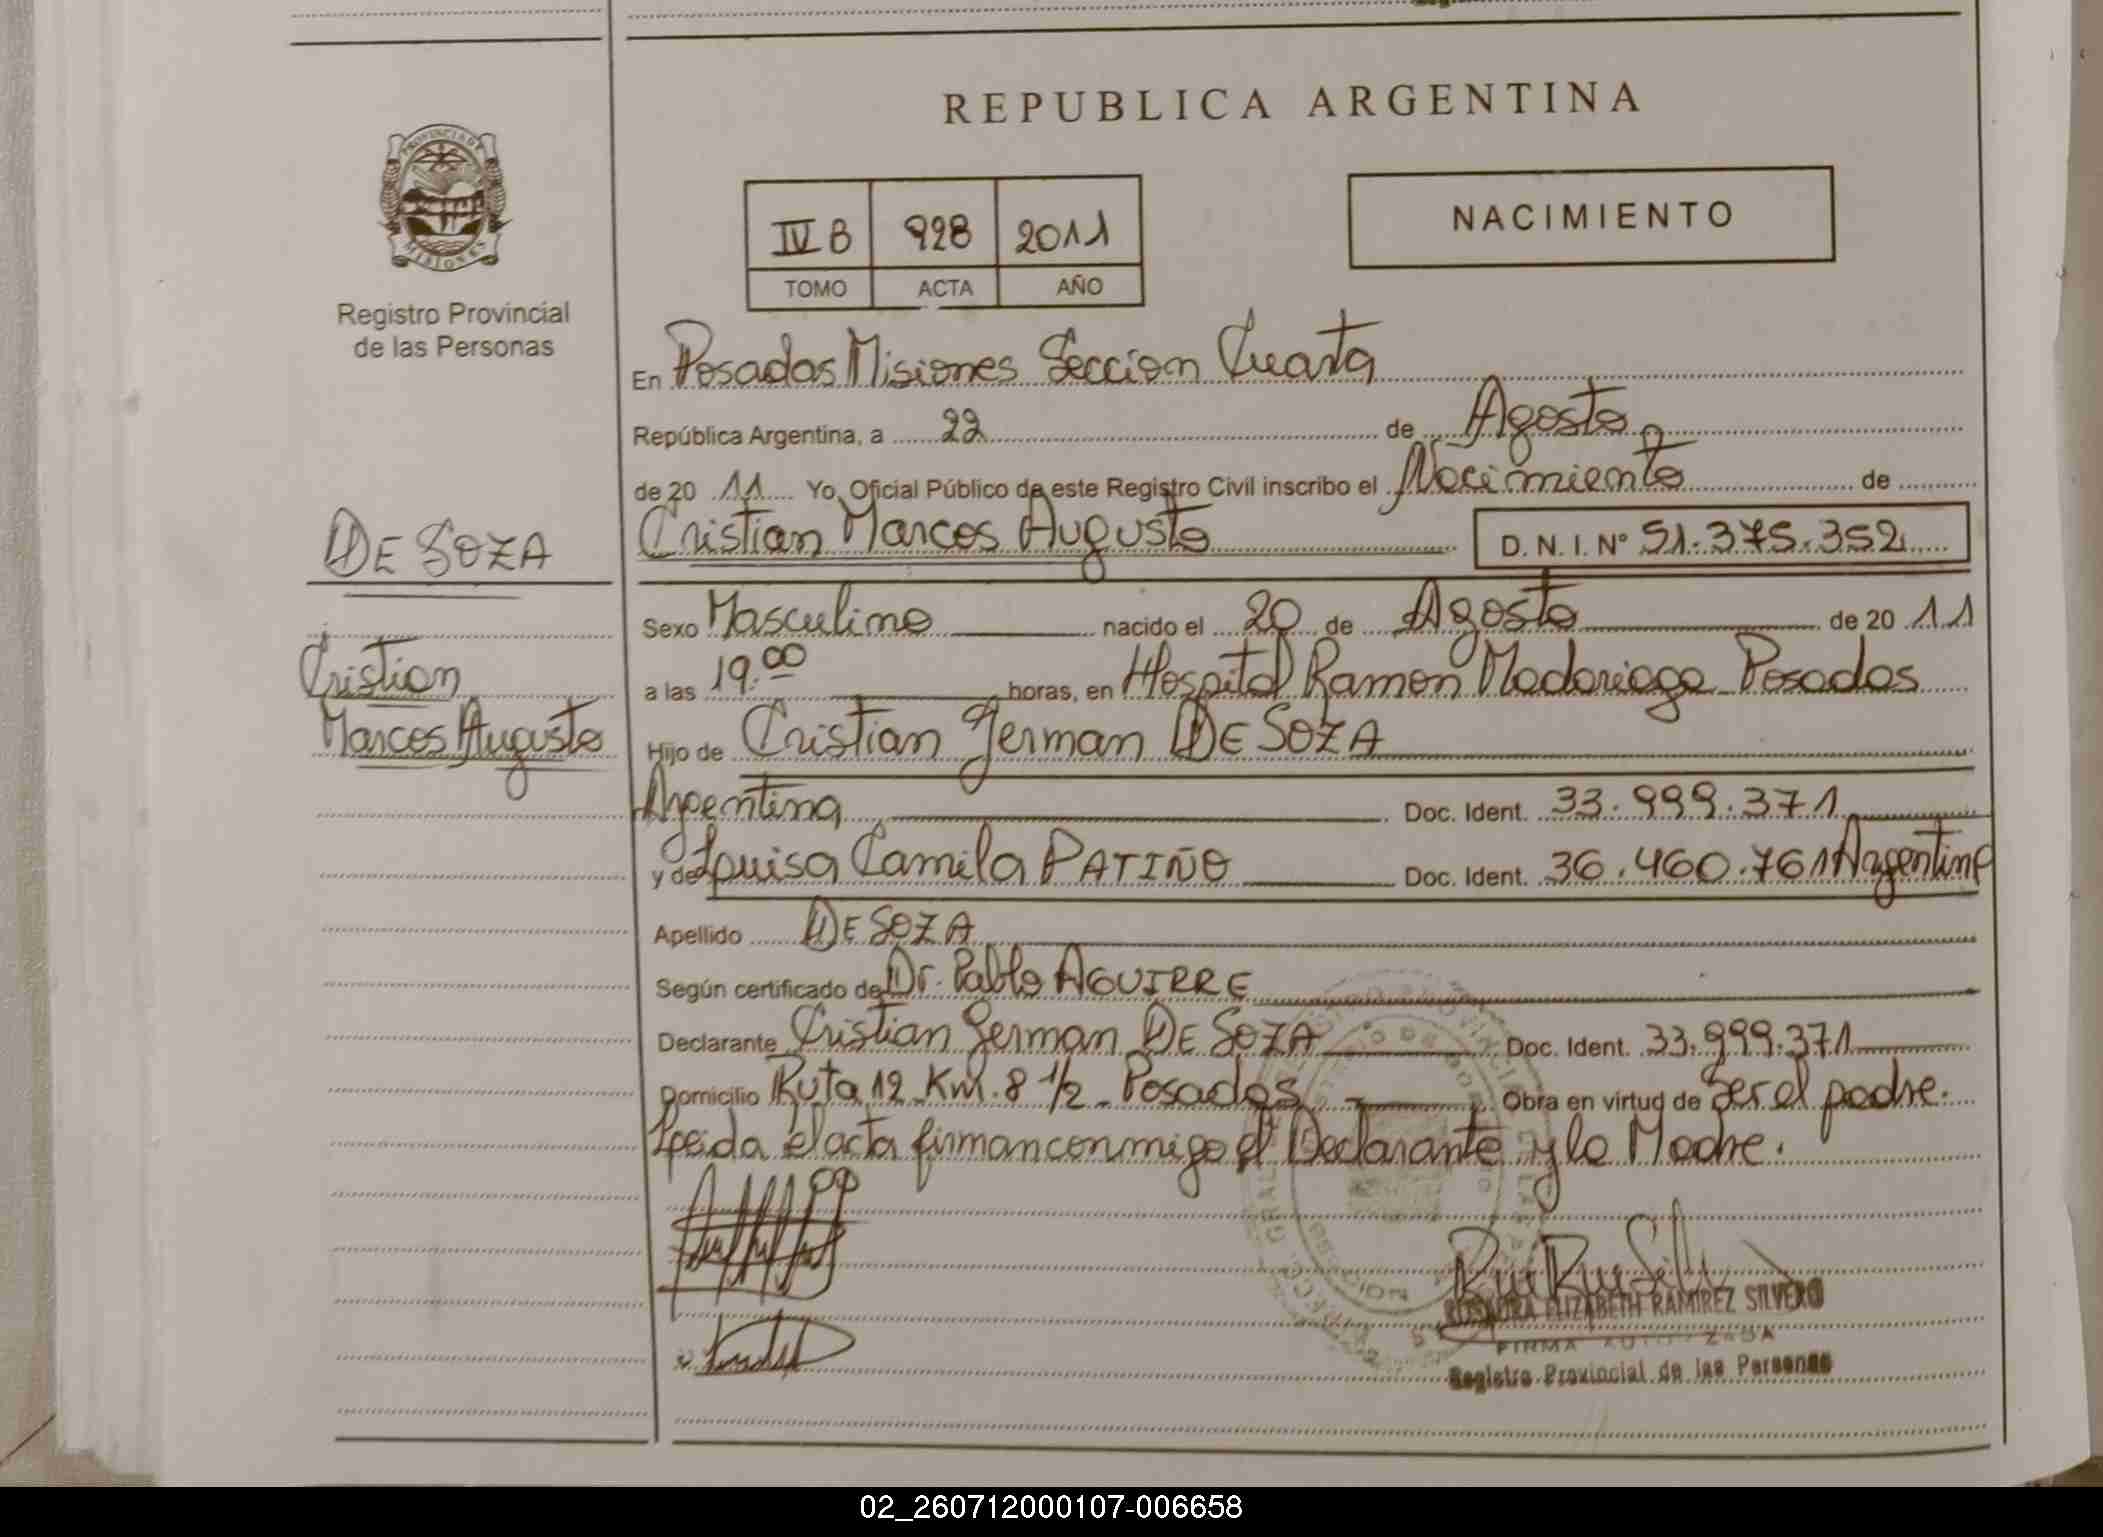 REPUBLICA ARGENTINA
PROVINCIA DE
MISIONES
Registro Provincial
de las Personas
IV B 928 2011
TOMO ACTA AÑO
NACIMIENTO
En Posadas Misiones Seccion Cuarta
República Argentina, a 22 de Agosto
de 20 11 Yo, Oficial Público de este Registro Civil inscribo el Nacimiento de
Cristian Marcos Augusto D. N. I. Nº 51.375.352
DE SOZA
Sexo Masculino nacido el 20 de Agosto de 20 11
Cristian
Marcos Augusto
a las 19.00 horas, en Hospital Ramon Madariaga Posadas
Hijo de Cristian German DE SOZA
Argentina Doc. Ident. 33.999.371
y de Louisa Camila PATIÑO Doc. Ident. 36.460.761 Argentina
Apellido DE SOZA
Según certificado de Dr. Pablo AGUIRRE
Declarante Cristian German DE SOZA Doc. Ident. 33.999.371
Domicilio Ruta 12 Km. 8 1/2 - Posadas Obra en virtud de Ser el padre.
Leida el acta firman conmigo el Declarante y la Madre.
ELIZABETH RAMIREZ SILVERO
FIRMA AUTORIZADA
Registro Provincial de las Personas
02_260712000107-006658